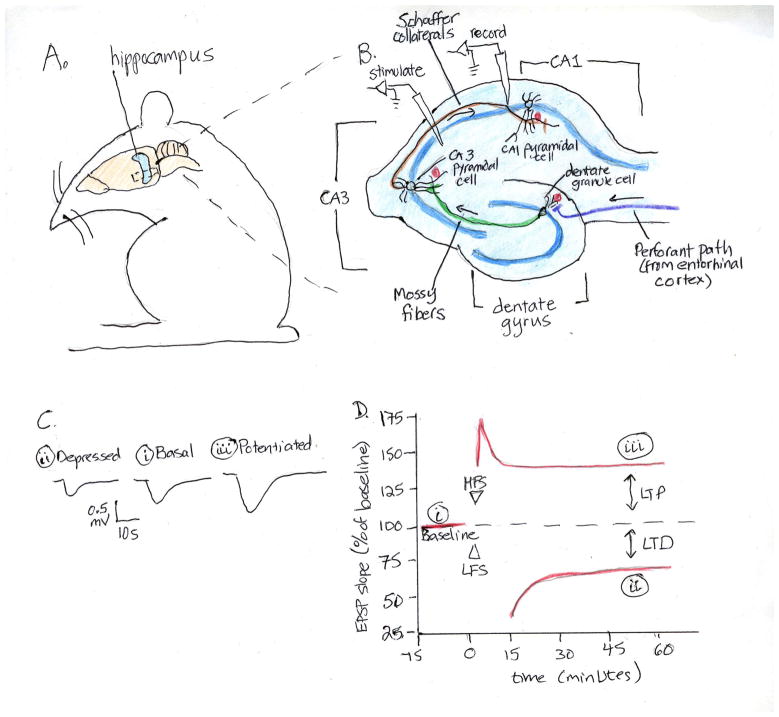 A.
hippocampus
B.
Schaffer
collaterals
record
stimulate
CA1
CA1 pyramidal
cell
CA3
pyramidal
cell
dentate
granule cell
CA3
Perforant path
(from entorhinal
cortex)
Mossy
fibers
dentate
gyrus
C.
ii Depressed
i Basal
iii Potentiated.
0.5
mV
10s
D.
EPSP slope (% of baseline)
175
150
125
100
75
50
25
HFS
i
Baseline
LFS
iii
LTP
LTD
ii
-15
0
15
30
45
60
time (minutes)